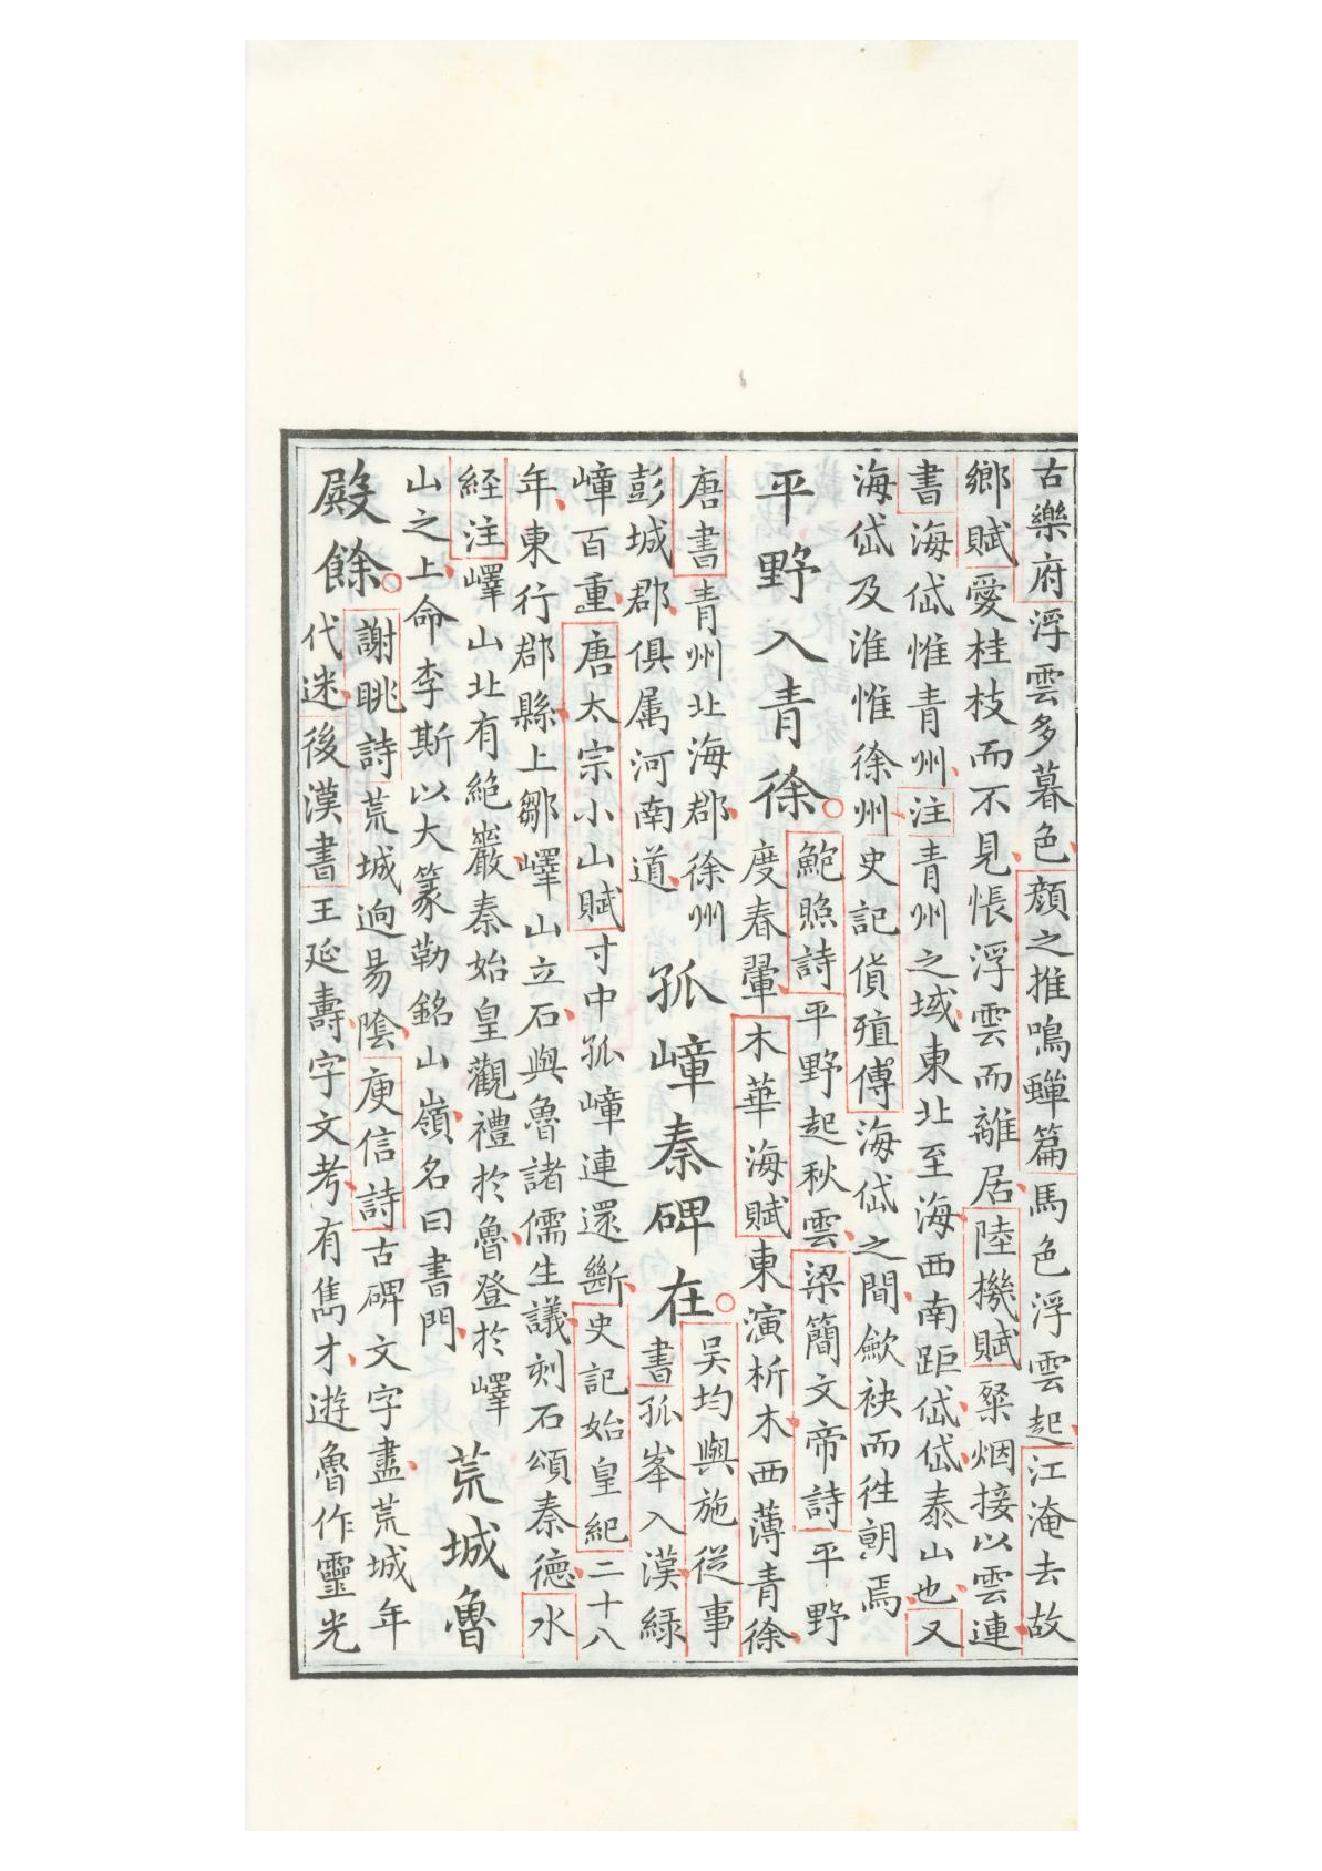 古樂府浮雲多暮色顔之推鳴蟬篇馬色浮雲起江淹去故
鄉賦愛桂枝而不見悵浮雲而離居陸機賦粲烟接以雲連
書海岱惟青州注青州之域東北至海西南距岱岱泰山也又
海岱及淮惟徐州史記貨殖傳海岱之間歛袂而徃朝焉
平野入青徐
鮑照詩平野起秋雲梁簡文帝詩平野
度春翬木華海賦東演析木西薄青徐
唐書青州北海郡徐州
彭城郡俱属河南道
孤嶂秦碑在
吴均與施從事
書孤峯入漢緑
嶂百重唐太宗小山賦寸中孤嶂連還斷史記始皇紀二十八
年東行郡縣上鄒嶧山立石與魯諸儒生議刻石頌秦德水
経注嶧山北有絶巖秦始皇觀禮於魯登於嶧
山之上命李斯以大篆勒銘山嶺名曰書門
荒城魯
殿餘
謝眺詩荒城逈易陰庾信詩古碑文字盡荒城年
代迷後漢書王延壽字文考有雋才遊魯作靈光